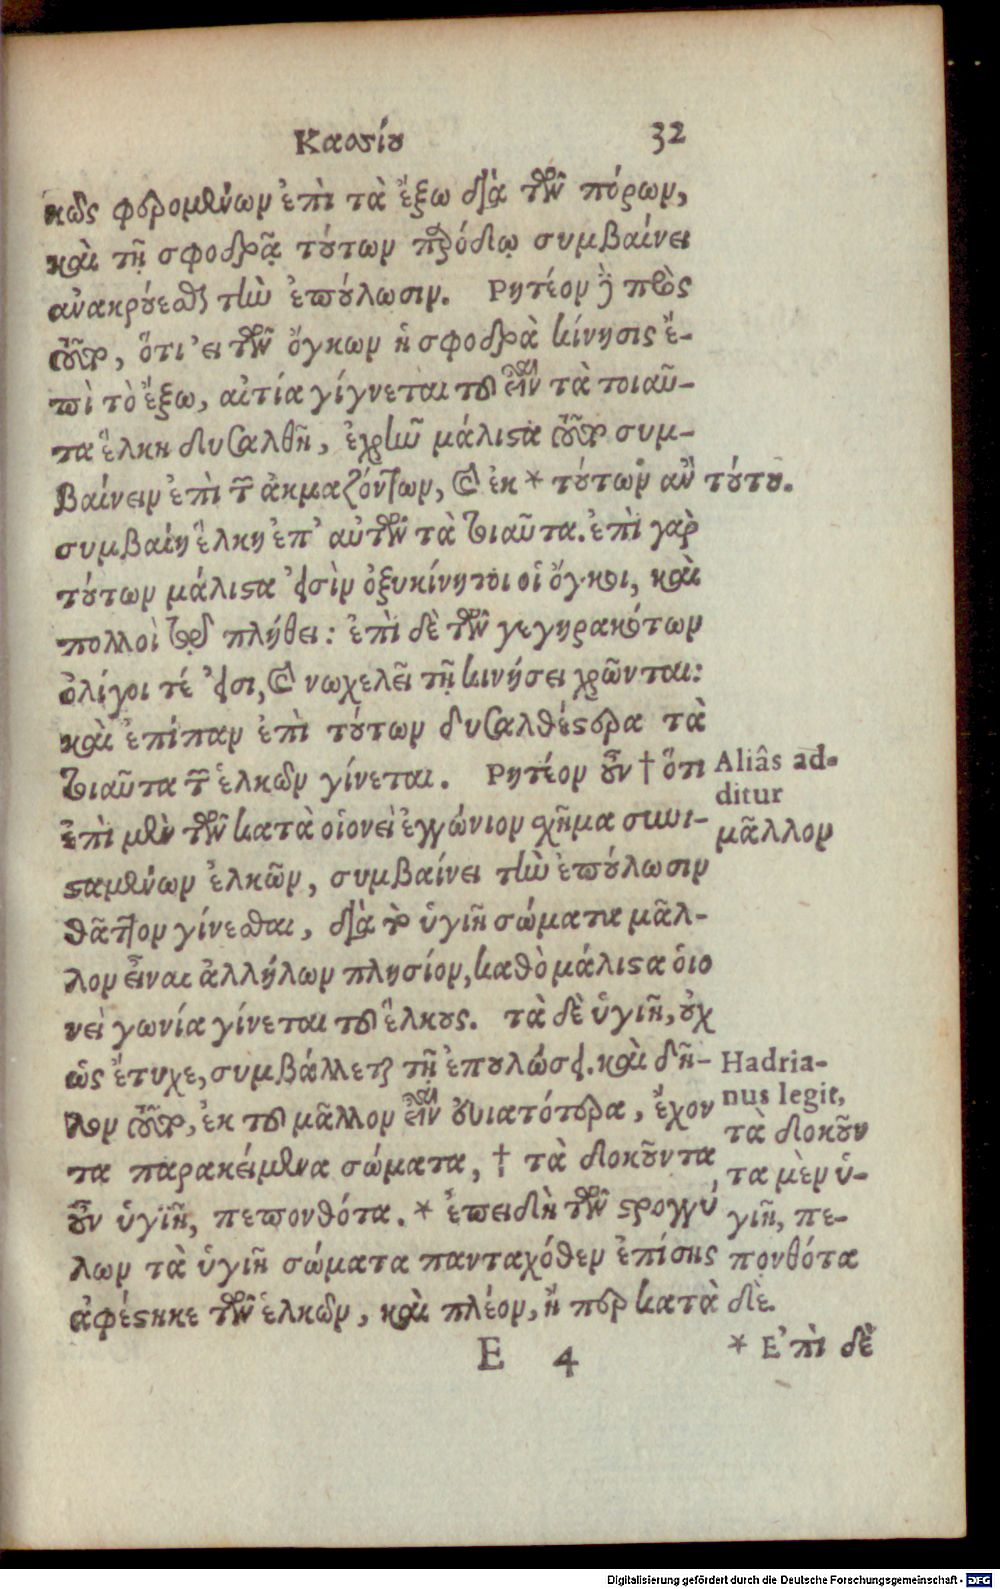 Κασσίου 32
κῶς φερομένων ἐπὶ τὰ ἔξω διὰ τῶν πόρων,
καὶ τῇ σφοδρᾷ τούτων προόδῳ συμβαίνει
ἀνακρούεσθαι τὴν ἐπούλωσιν. Ρητέον δὲ πρὸς
τοῦτο, ὅτι εἰ τῶν ὄγκων ἡ σφοδρὰ κίνησις ἐ-
πὶ τὸ ἔξω, αἰτία γίγνεται τοῦ εἶναι τὰ τοιαῦ-
τα ἕλκη δυσαλθῆ, ἐχρῆν μάλιστα τοῦτο συμ-
βαίνειν ἐπὶ τῶν ἀκμαζόντων, καὶ ἐκ * τούτων ἂν τούτου.
συμβαίη ἕλκη ἐπ' αὐτῶν τὰ τοιαῦτα. ἐπὶ γὰρ
τούτων μάλιστα εἰσὶν ὀξυκίνητοι οἱ ὄγκοι, καὶ
πολλοὶ τῷ πλήθει: ἐπὶ δὲ τῶν γεγηρακότων
ὀλίγοι τέ εἰσι, καὶ νωχελεῖ τῇ κινήσει χρῶνται:
καὶ ἐπίπαν ἐπὶ τούτων δυσαλθέστερα τὰ
τοιαῦτα τῶν ἑλκῶν γίνεται. Ρητέον οὖν † ὅτι
Aliâs ad-
ditur
μᾶλλον
ἐπὶ μὲν τῶν κατὰ οἱονεὶ ἐγγώνιον σχῆμα συνι-
σταμένων ἑλκῶν, συμβαίνει τὴν ἐπούλωσιν
θᾶττον γίνεσθαι, διὰ τὸ ὑγιῆ σώματα μᾶλ-
λον εἶναι ἀλλήλων πλησίον, καθὸ μάλιστα οἱο
νεὶ γωνία γίνεται τοῦ ἕλκους. τὰ δὲ ὑγιῆ, οὐχ
ὡς ἔτυχε, συμβάλλεται τῇ ἐπουλώσει. καὶ δῆ-
λον τοῦτο, ἐκ τοῦ μᾶλλον εἶναι οὐιατότερα, ἔχον
τα παρακείμενα σώματα, † τὰ δοκοῦντα
οὖν ὑγιῆ, πεπονθότα. * ἐπειδὴ τῶν στρογγύ
λων τὰ ὑγιῆ σώματα πανταχόθεν ἐπίσης
ἀφέστηκε τῶν ἑλκῶν, καὶ πλέον, ἤ περ κατὰ
Hadria-
nus legit,
τὰ δοκοῦν
τα μὲν ὑ-
γιῆ, πε-
πονθότα
δὲ.
* Ἐπὶ δὲ
E 4
Digitalisierung gefördert durch die Deutsche Forschungsgemeinschaft - DFG